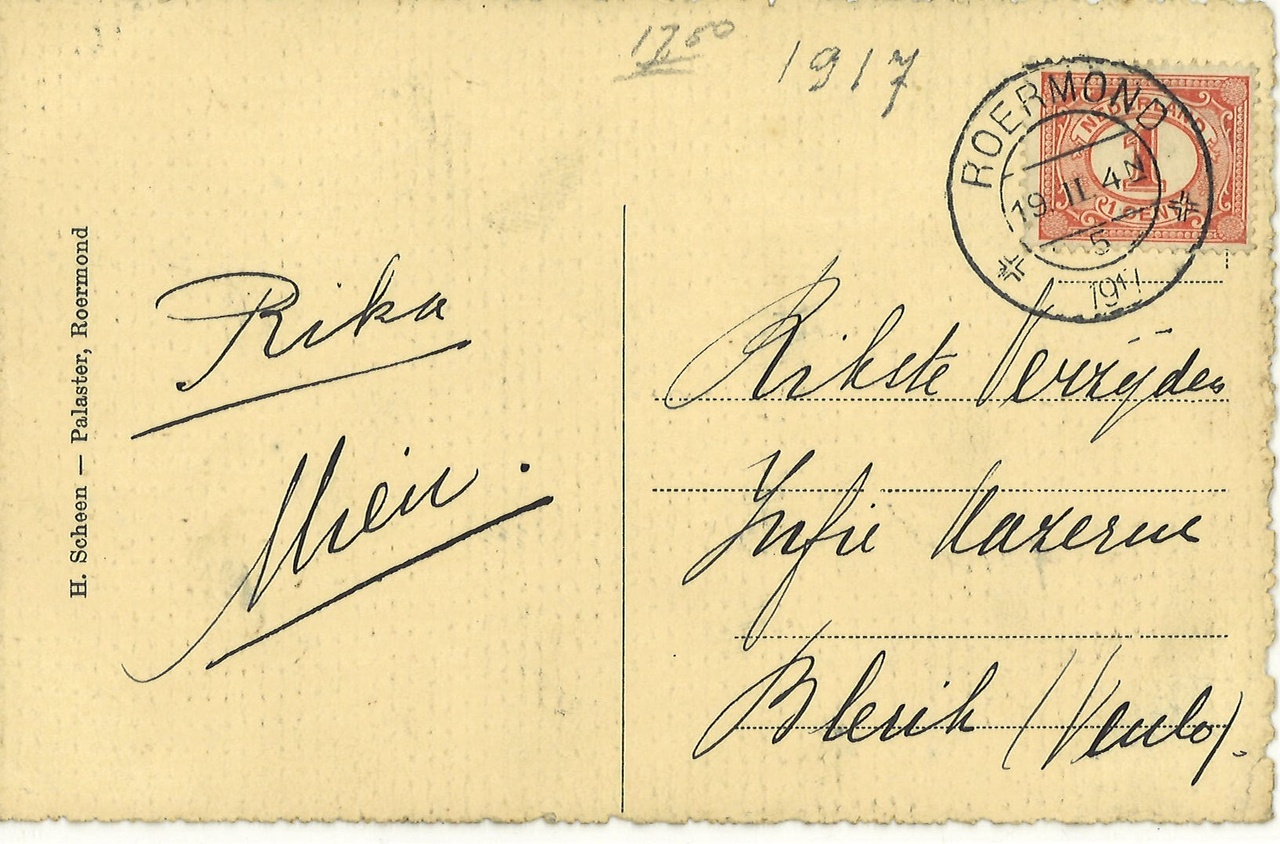 1750
1917
ROERMOND
NEDERLAND
1
19.II.4N
1 CENT
5
1917
H. Scheen — Palaster, Roermond
Rika
Mien.
Rikste Verzijden
Infie Kazerne
Blerik (Venlo).